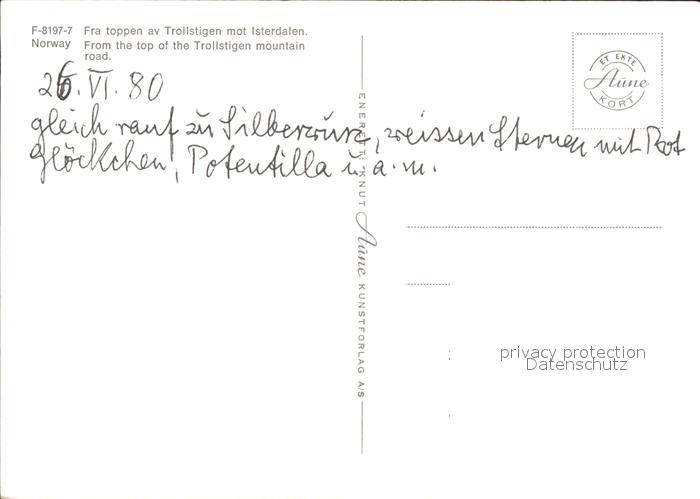 F-8197-7 Fra toppen av Trollstigen mot Isterdalen.
Norway From the top of the Trollstigen mountain
road.
ET EKTE
Aune
KORT
26. VI. 80
gleich rauf zu Silberwurz, weissen Sternen mit Rot
Glöckchen, Potentilla u. a. m.
ENERETT: KNUT Aune KUNSTFORLAG A/S
privacy protection
Datenschutz